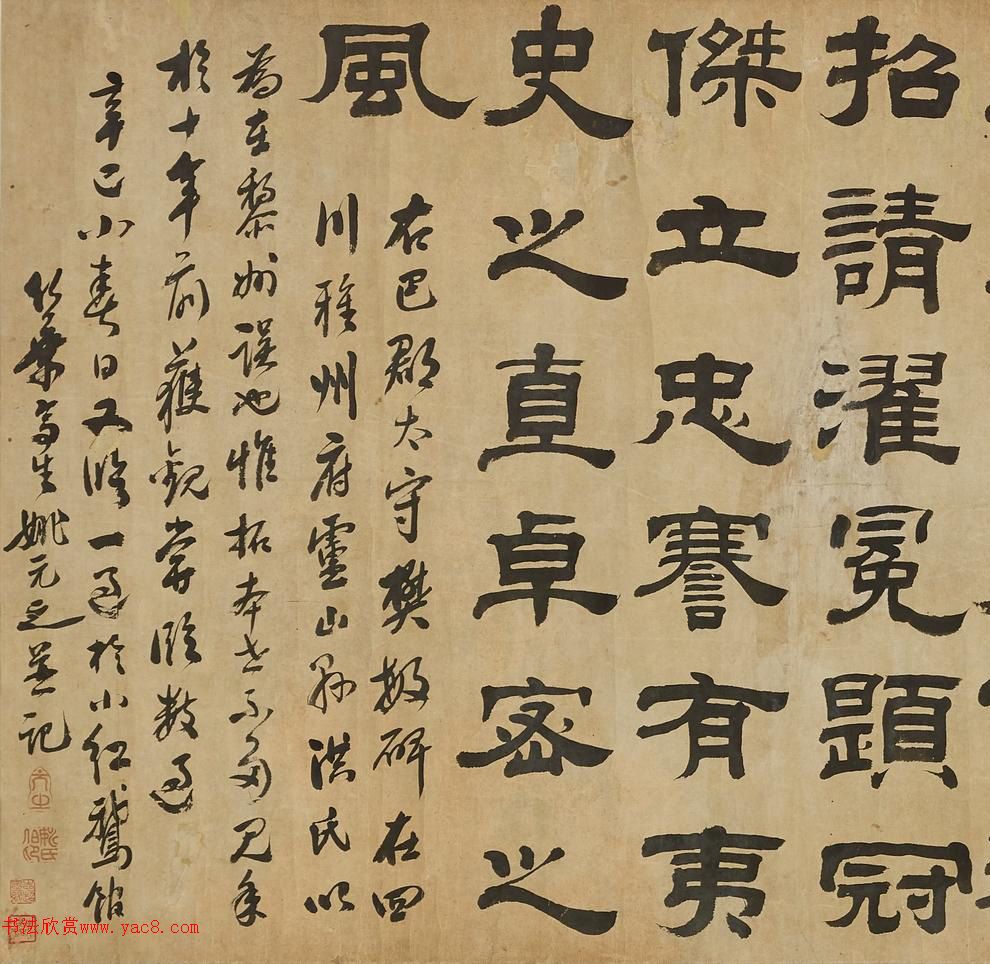 招請濯冕題冠
傑立忠謇有夷
史之直卓密之
風
右巴郡太守樊敏碑在四
川雅州府盧山縣洪氏以
為在黎州誤也惟拓本世不多見余
於十年前獲觀嘗臨數過
辛巳小春日又臨一過於小紅鵞館
竹葉亭生姚元之並記
书法欣赏www.yac8.com